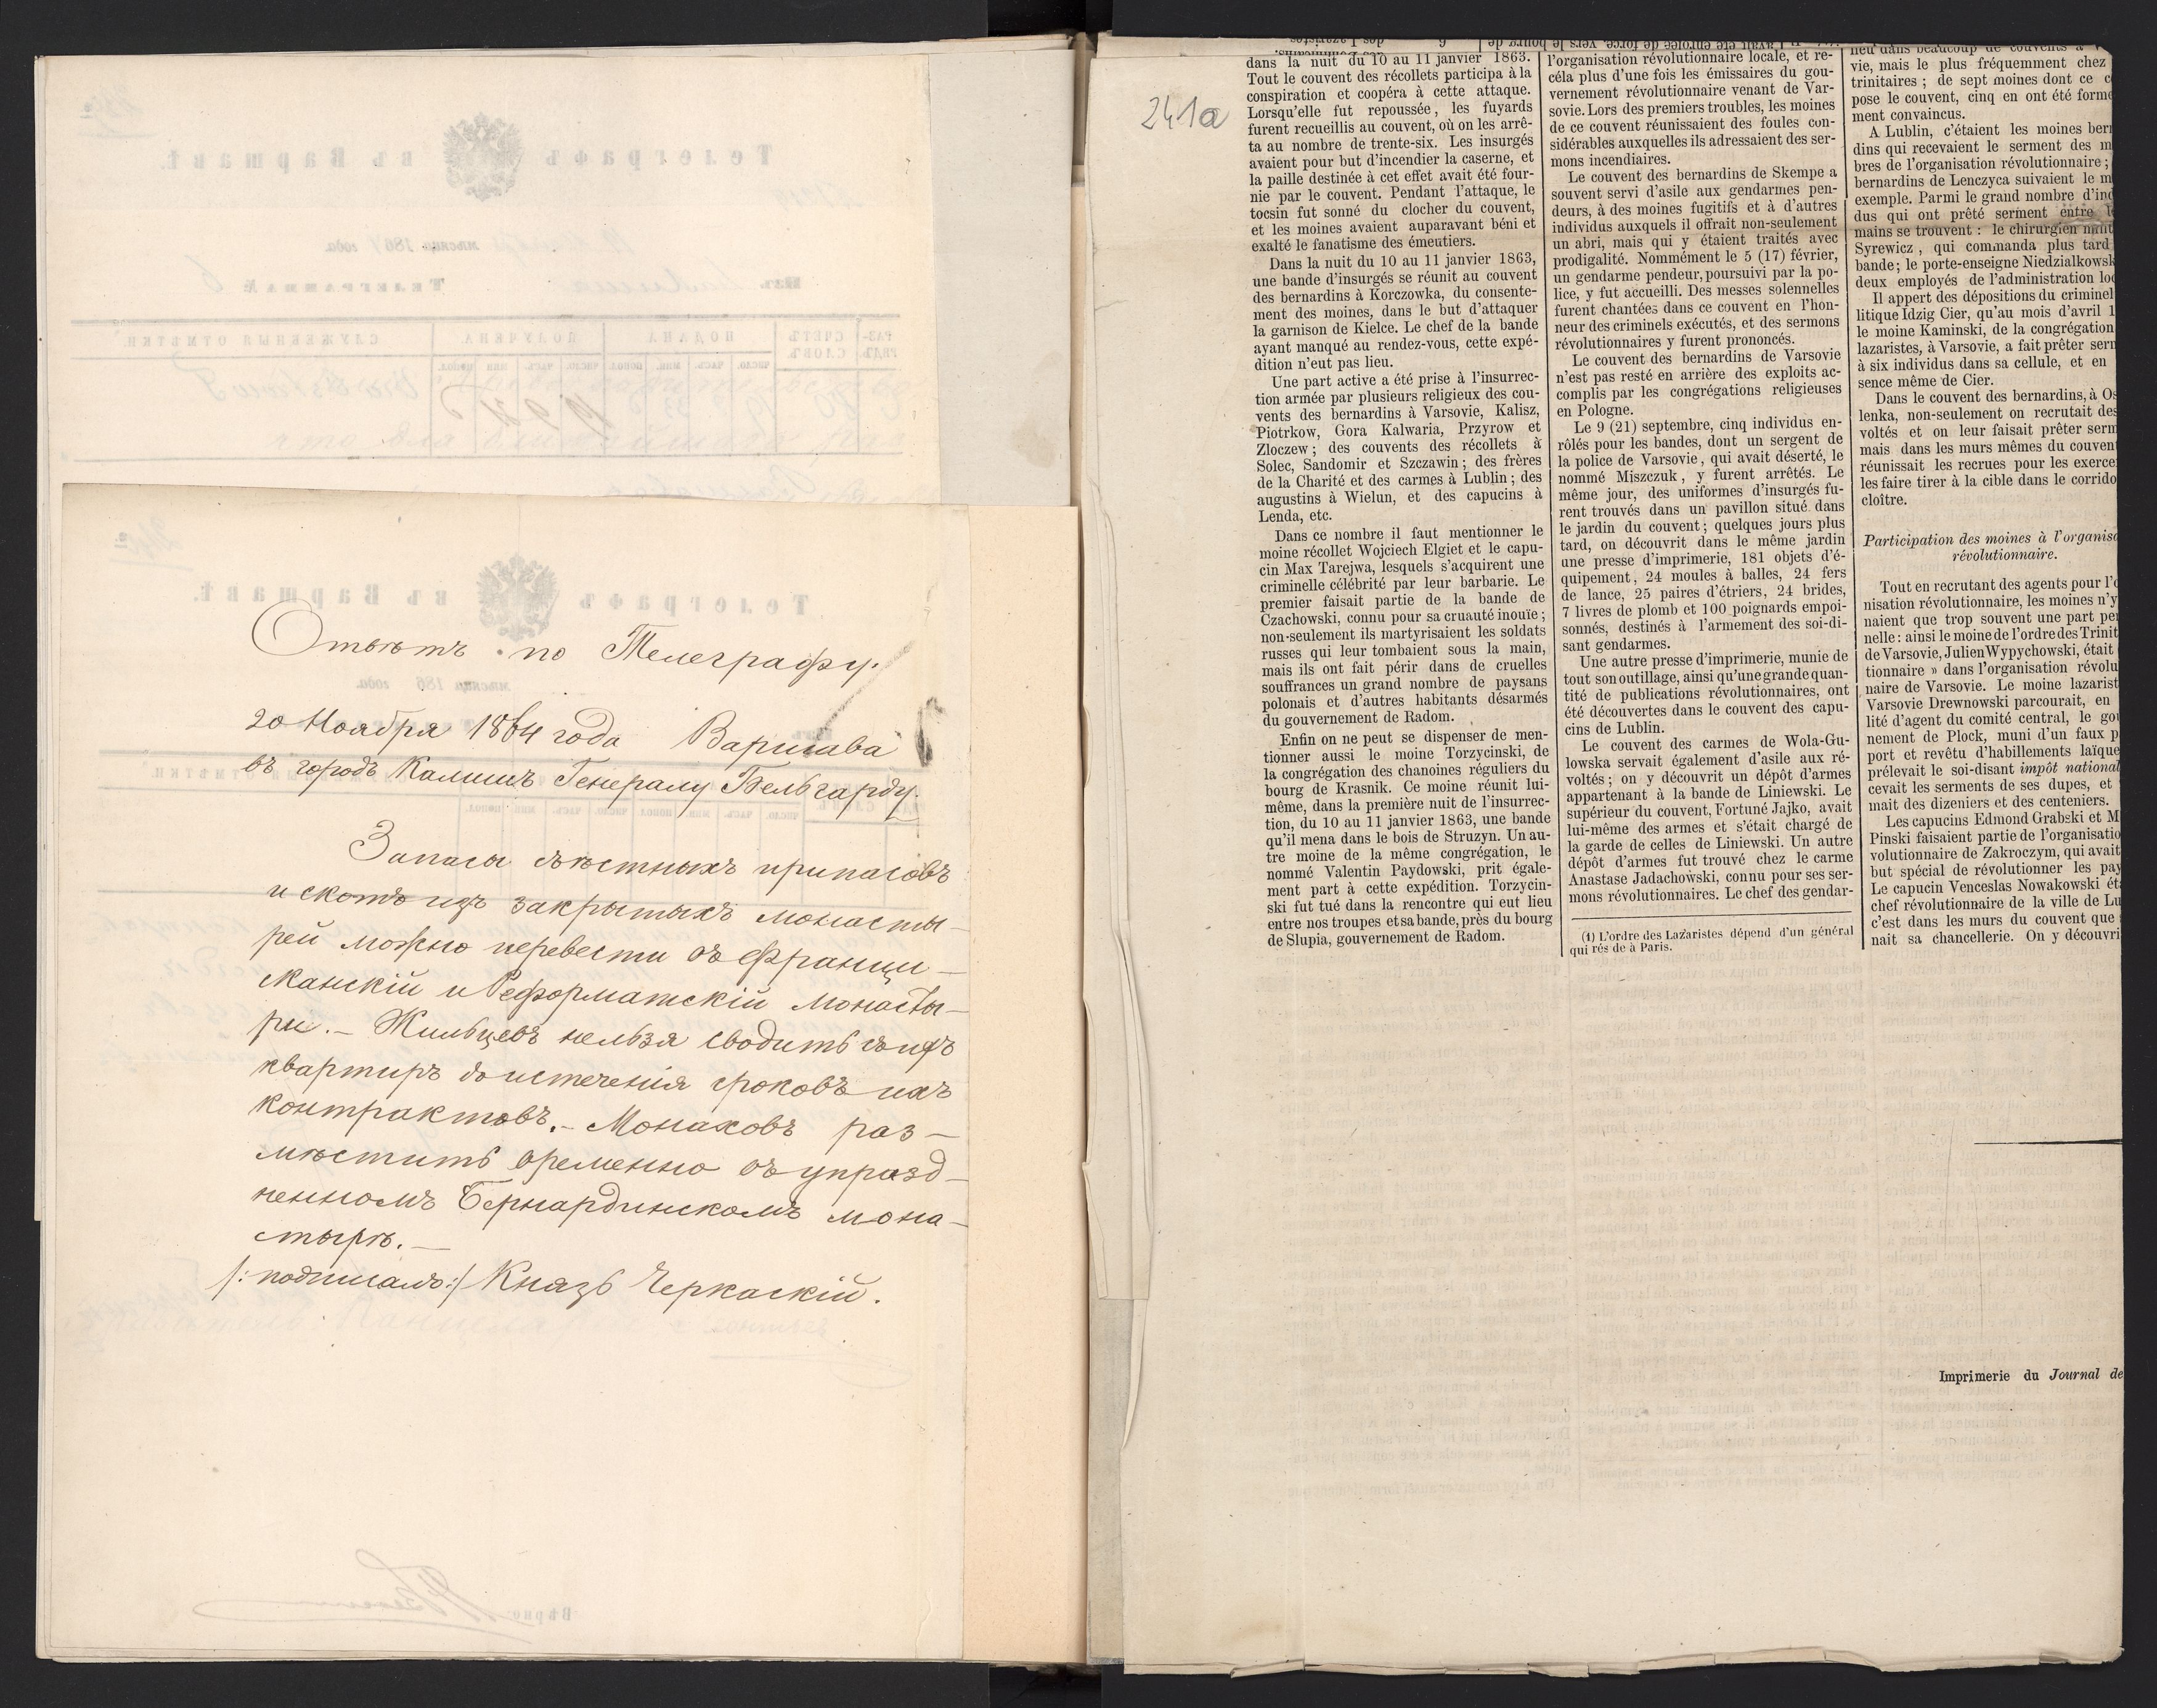 Отвѣтъ по Телеграфу.
20 Ноября 1864 года Варшава
въ городъ Калишъ Генералу Бельгарду.
Запасы съѣстныхъ припасовъ
и скотъ изъ закрытыхъ монасты-
рей можно перевести въ Францис-
канскій и Реформатскій монасты-
ри. - Жильцевъ нельзя сводить съ ихъ
квартиръ до истеченія сроковъ ихъ
контрактовъ. - Монаховъ раз-
мѣстить временно въ упразд-
ненномъ Бернардинскомъ мона-
стырѣ. -
/: подписалъ :/ Князь Черкаскій.
241a
dans la nuit du 10 au 11 janvier 1863.
Tout le couvent des récollets participa à la
conspiration et coopéra à cette attaque.
Lorsqu'elle fut repoussée, les fuyards
furent recueillis au couvent, où on les arrê-
ta au nombre de trente-six. Les insurgés
avaient pour but d'incendier la caserne, et
la paille destinée à cet effet avait été four-
nie par le couvent. Pendant l'attaque, le
tocsin fut sonné du clocher du couvent,
et les moines avaient auparavant béni et
exalté le fanatisme des émeutiers.
Dans la nuit du 10 au 11 janvier 1863,
une bande d'insurgés se réunit au couvent
des bernardins à Korczowka, du consente-
ment des moines, dans le but d'attaquer
la garnison de Kielce. Le chef de la bande
ayant manqué au rendez-vous, cette expé-
dition n'eut pas lieu.
Une part active a été prise à l'insurrec-
tion armée par plusieurs religieux des cou-
vents des bernardins à Varsovie, Kalisz,
Piotrkow, Gora Kalwaria, Przyrow et
Zloczew; des couvents des récollets à
Solec, Sandomir et Szczawin; des frères
de la Charité et des carmes à Lublin; des
augustins à Wielun, et des capucins à
Lenda, etc.
Dans ce nombre il faut mentionner le
moine récollet Wojciech Elgiet et le capu-
cin Max Tarejwa, lesquels s'acquirent une
criminelle célébrité par leur barbarie. Le
premier faisait partie de la bande de
Czachowski, connu pour sa cruauté inouïe;
non-seulement ils martyrisaient les soldats
russes qui leur tombaient sous la main,
mais ils ont fait périr dans de cruelles
souffrances un grand nombre de paysans
polonais et d'autres habitants désarmés
du gouvernement de Radom.
Enfin on ne peut se dispenser de men-
tionner aussi le moine Torzycinski, de
la congrégation des chanoines réguliers du
bourg de Krasnik. Ce moine réunit lui-
même, dans la première nuit de l'insurrec-
tion, du 10 au 11 janvier 1863, une bande
qu'il mena dans le bois de Struzyn. Un au-
tre moine de la même congrégation, le
nommé Valentin Paydowski, prit égale-
ment part à cette expédition. Torzycin-
ski fut tué dans la rencontre qui eut lieu
entre nos troupes et sa bande, près du bourg
de Slupia, gouvernement de Radom.
l'organisation révolutionnaire locale, et re-
céla plus d'une fois les émissaires du gou-
vernement révolutionnaire venant de Var-
sovie. Lors des premiers troubles, les moines
de ce couvent réunissaient des foules con-
sidérables auxquelles ils adressaient des ser-
mons incendiaires.
Le couvent des bernardins de Skempe a
souvent servi d'asile aux gendarmes pen-
deurs, à des moines fugitifs et à d'autres
individus auxquels il offrait non-seulement
un abri, mais qui y étaient traités avec
prodigalité. Nommément le 5 (17) février,
un gendarme pendeur, poursuivi par la po-
lice, y fut accueilli. Des messes solennelles
furent chantées dans ce couvent en l'hon-
neur des criminels exécutés, et des sermons
révolutionnaires y furent prononcés.
Le couvent des bernardins de Varsovie
n'est pas resté en arrière des exploits ac-
complis par les congrégations religieuses
en Pologne.
Le 9 (21) septembre, cinq individus en-
rôlés pour les bandes, dont un sergent de
la police de Varsovie, qui avait déserté, le
nommé Miszczuk, y furent arrêtés. Le
même jour, des uniformes d'insurgés fu-
rent trouvés dans un pavillon situé dans
le jardin du couvent; quelques jours plus
tard, on découvrit dans le même jardin
une presse d'imprimerie, 181 objets d'é-
quipement, 24 moules à balles, 24 fers
de lance, 25 paires d'étriers, 24 brides,
7 livres de plomb et 100 poignards empoi-
sonnés, destinés à l'armement des soi-di-
sant gendarmes.
Une autre presse d'imprimerie, munie de
tout son outillage, ainsi qu'une grande quan-
tité de publications révolutionnaires, ont
été découvertes dans le couvent des capu-
cins de Lublin.
Le couvent des carmes de Wola-Gu-
lowska servait également d'asile aux ré-
voltés; on y découvrit un dépôt d'armes
appartenant à la bande de Liniewski. Le
supérieur du couvent, Fortuné Jajko, avait
lui-même des armes et s'était chargé de
la garde de celles de Liniewski. Un autre
dépôt d'armes fut trouvé chez le carme
Anastase Jadachowski, connu pour ses ser-
mons révolutionnaires. Le chef des gendar-
(1) L'ordre des Lazaristes dépend d'un général
qui rés de à Paris.
lieu dans beaucoup de couvents à
vie, mais le plus fréquemment chez
trinitaires; de sept moines dont ce c
pose le couvent, cinq en ont été forme
ment convaincus.
A Lublin, c'étaient les moines ber
dins qui recevaient le serment des m
bres de l'organisation révolutionnaire;
bernardins de Lenczyca suivaient le m
exemple. Parmi le grand nombre d'ind
dus qui ont prêté serment entre l
mains se trouvent: le chirurgien milit
Syrewicz, qui commanda plus tard
bande; le porte-enseigne Niedzialkowsk
deux employés de l'administration loc
Il appert des dépositions du criminel
litique Idzig Cier, qu'au mois d'avril 1
le moine Kaminski, de la congrégation
lazaristes, à Varsovie, a fait prêter serm
à six individus dans sa cellule, et en
sence même de Cier.
Dans le couvent des bernardins, à Os
lenka, non-seulement on recrutait des
voltés et on leur faisait prêter serm
mais dans les murs mêmes du couvent
réunissait les recrues pour les exerce
les faire tirer à la cible dans le corrido
cloître.
Participation des moines à l'organisa
révolutionnaire.
Tout en recrutant des agents pour l'o
nisation révolutionnaire, les moines n'y
naient que trop souvent une part per
nelle: ainsi le moine de l'ordre des Trinit
de Varsovie, Julien Wypychowski, était
tionnaire » dans l'organisation révolu
naire de Varsovie. Le moine lazarist
Varsovie Drewnowski parcourait, en
lité d'agent du comité central, le gou
nement de Plock, muni d'un faux p
port et revêtu d'habillements laïque
prélevait le soi-disant impôt national
cevait les serments de ses dupes, et
mait des dizeniers et des centeniers.
Les capucins Edmond Grabski et M
Pinski faisaient partie de l'organisatio
volutionnaire de Zakroczym, qui avait
but spécial de révolutionner les pay
Le capucin Venceslas Nowakowski éta
chef révolutionnaire de la ville de Lu
c'est dans les murs du couvent que
nait sa chancellerie. On y découvri
Imprimerie du Journal de